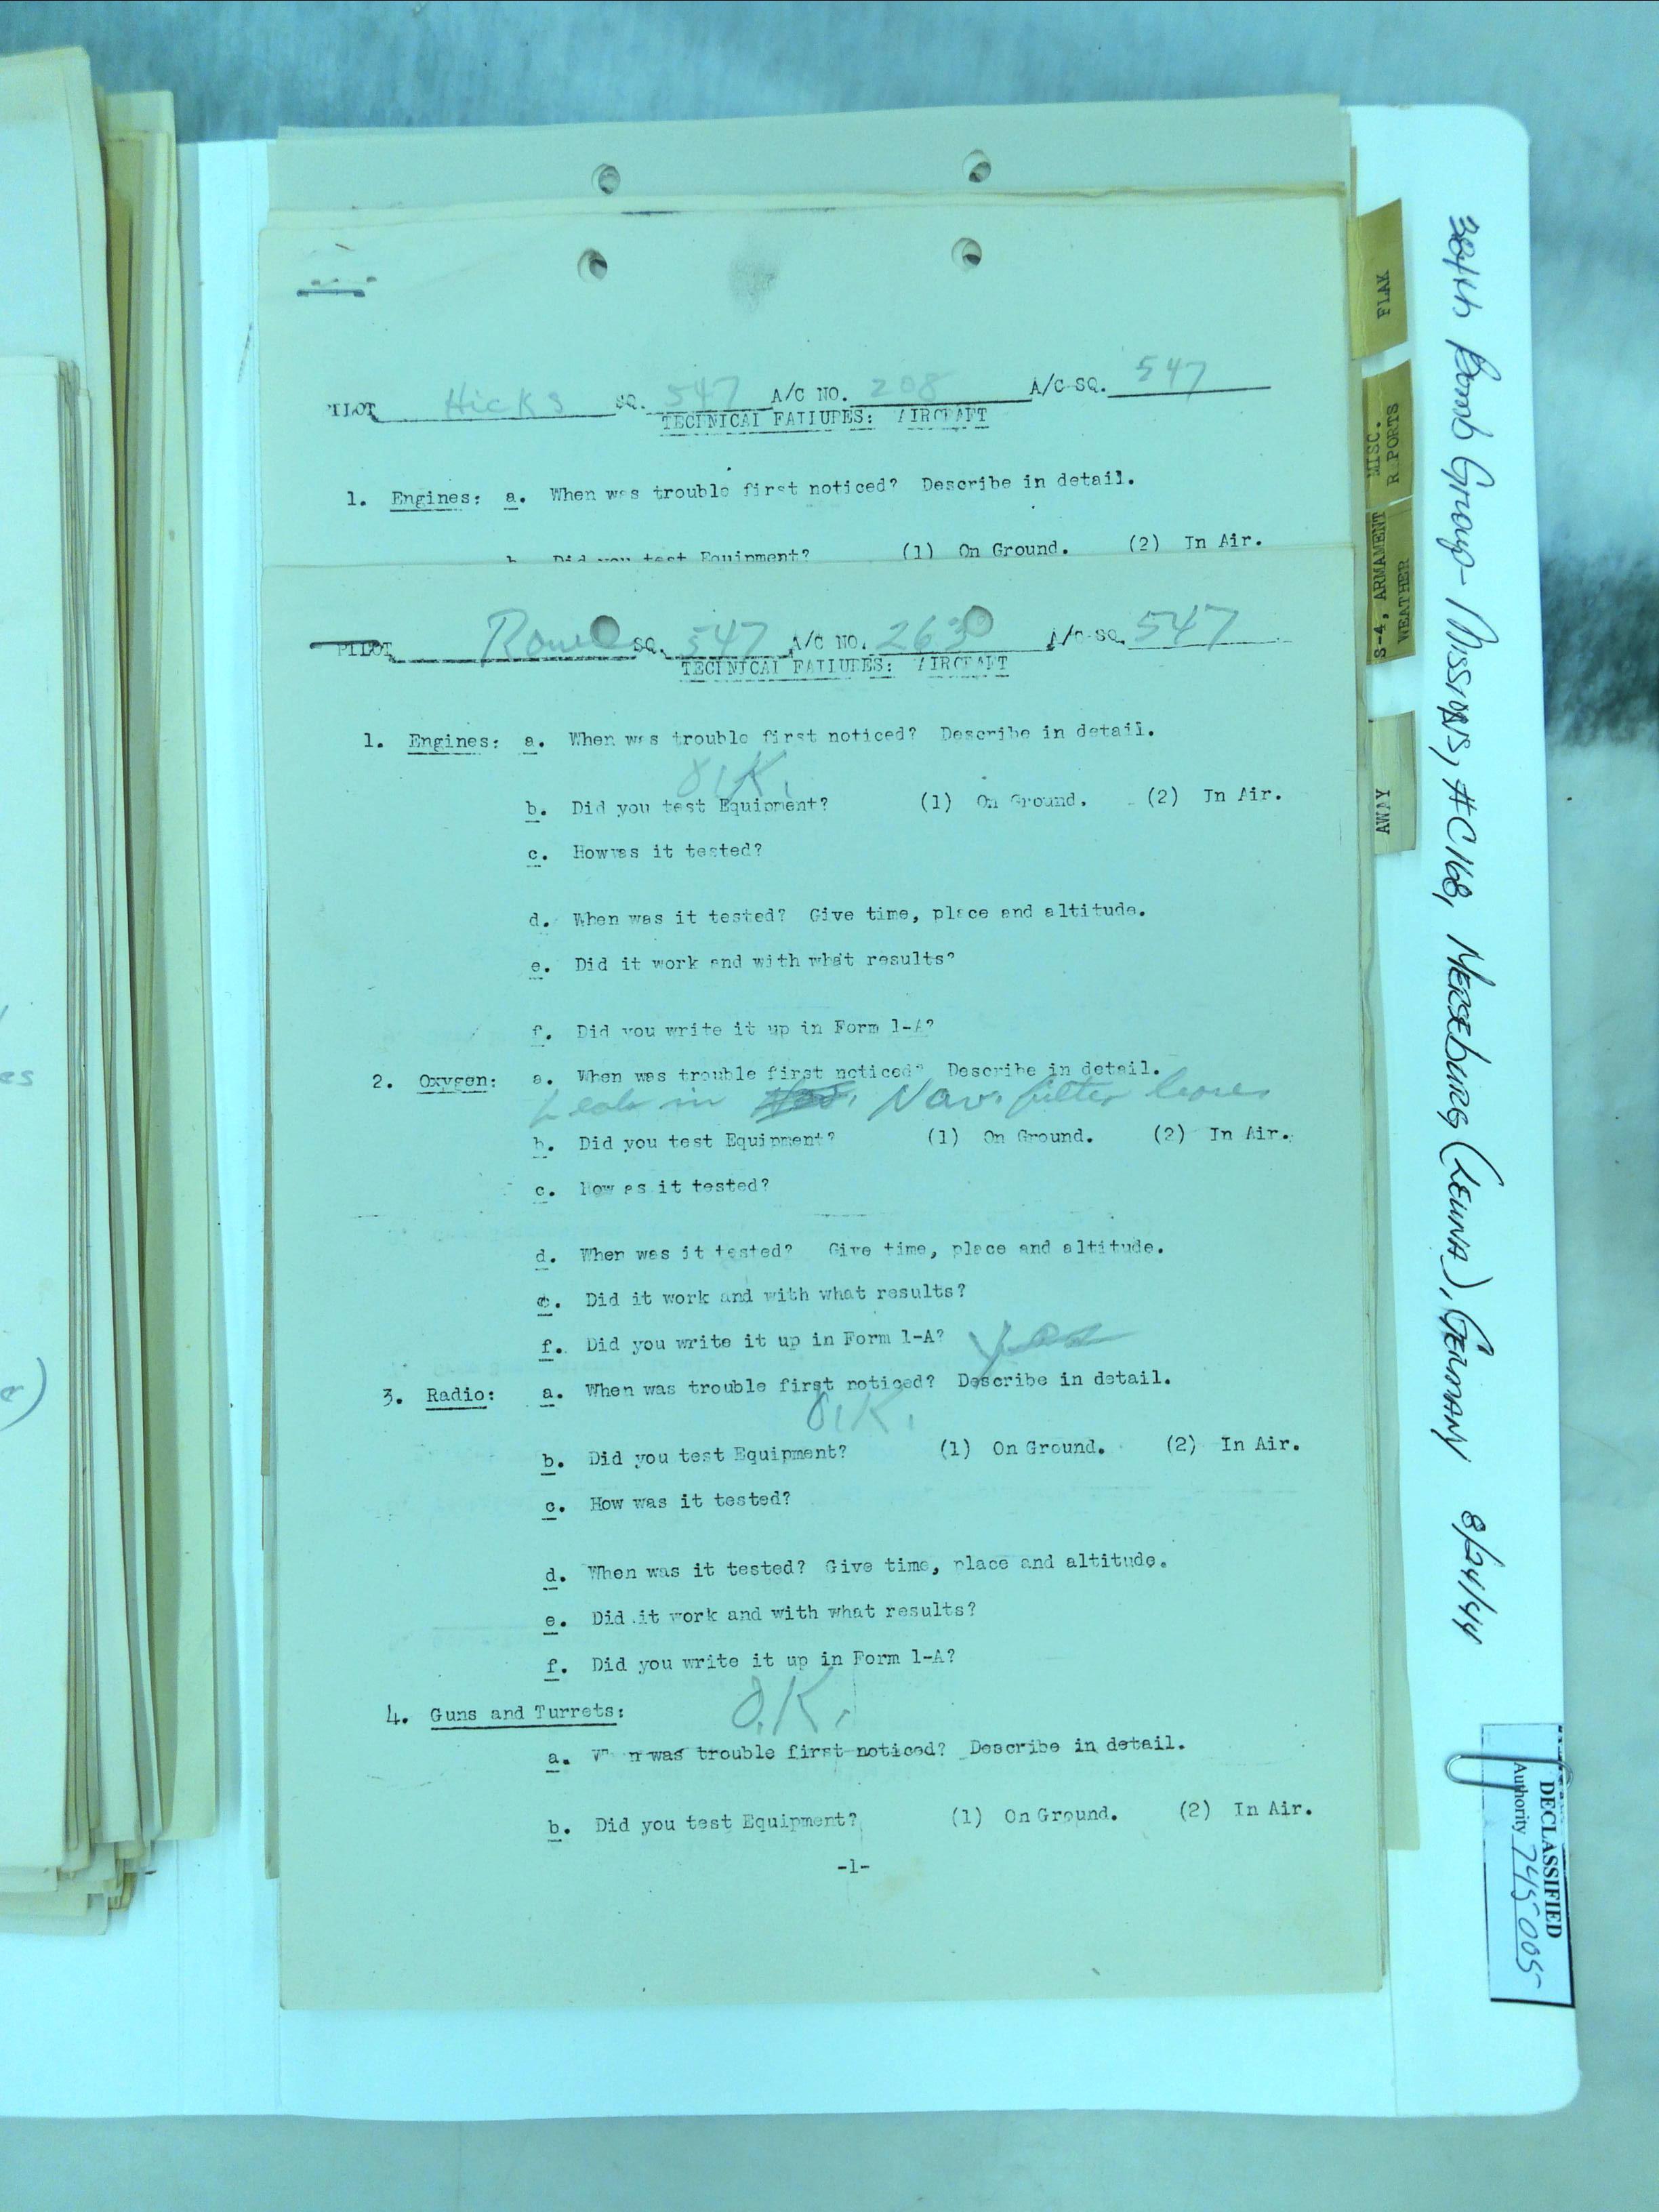 PILOT Hicks SQ. 547 A/C NO. 208 A/C SQ. 547
TECHNICAL FAILURES: AIRCRAFT
1. Engines: a. When was trouble first noticed? Describe in detail.
b. Did you test Equipment? (1) On Ground. (2) In Air.
PILOT Rowe SQ. 547 A/C NO. 263 A/C SQ. 547
TECHNICAL FAILURES: AIRCRAFT
1. Engines: a. When was trouble first noticed? Describe in detail.
O.K.
b. Did you test Equipment? (1) On Ground. (2) In Air.
c. How was it tested?
d. When was it tested? Give time, place and altitude.
e. Did it work and with what results?
f. Did you write it up in Form 1-A?
2. Oxygen: a. When was trouble first noticed? Describe in detail.
Leak in Nav. filter
b. Did you test Equipment? (1) On Ground. (2) In Air.
c. How as it tested?
d. When was it tested? Give time, place and altitude.
e. Did it work and with what results?
f. Did you write it up in Form 1-A? Yes
3. Radio: a. When was trouble first noticed? Describe in detail.
O.K.
b. Did you test Equipment? (1) On Ground. (2) In Air.
c. How was it tested?
d. When was it tested? Give time, place and altitude.
e. Did it work and with what results?
f. Did you write it up in Form 1-A?
4. Guns and Turrets: O.K.
a. When was trouble first noticed? Describe in detail.
b. Did you test Equipment? (1) On Ground. (2) In Air.
-1-
FLAK
MISC.
R PORTS
S-4, ARMAMENT
WEATHER
AWAY
384th Bomb Group - Missions, #C168, Merseburg (Leuna), Germany 8/24/44
DECLASSIFIED
Authority 745005
es